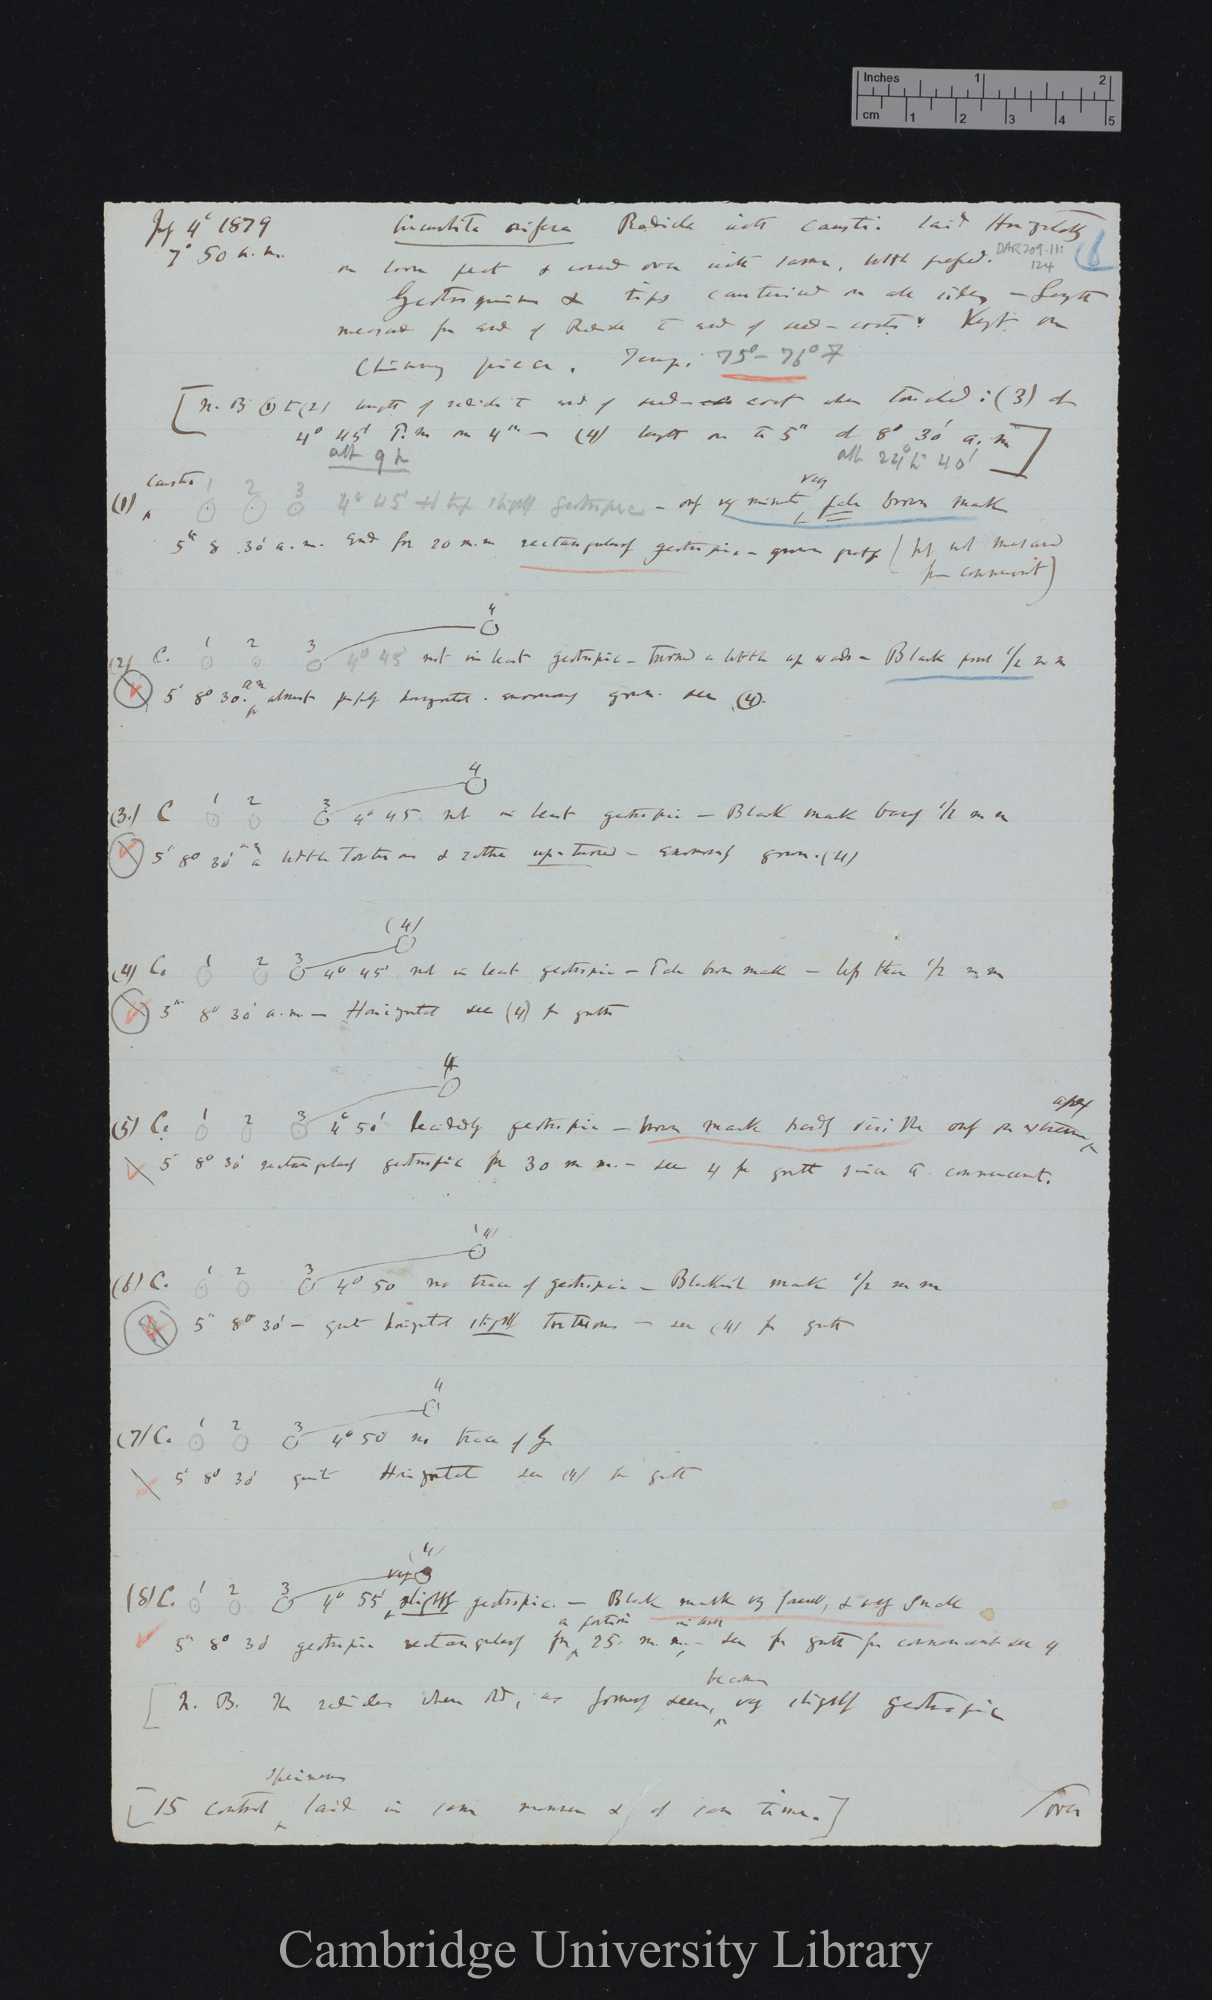 Inches 1 2
cm 1 2 3 4 5
July 4th 1879 Cucurbita ovifera Radicles with caustic laid Horizontally
7° 50 a.m. on damp peat & covered over with same, with DAR 209.11: 124 6
Geotropism & tips cauterised on all sides — Length
measured from end of Radicle to end of seed-coats. Kept on
Chimney piece. Temp: 75°–76° F
[N.B (1) & (2) length of radicle to end of seed-coat when touched: (3) at
4° 45' P.m on 4th — (4) length on to 5th at 8° 30' a.m]
after 9h after 24h 40'
caustic 1 2 3 very
(1) 4° 45' tip slightly geotropic — only minute pale brown mark
5th 8 30' a.m. end for 20 m.m rectangularly geotropic — grown greatly (but not measured
for convenient)
4
(2) C. 1 2 3 4° 45' not in least geotropic — turned a little upwards — Black for 1/2 m m
5' 8° 30' a m almost perfectly horizontal. enormously grown. see (4).
4
(3.) C 1 2 3 4° 45. not in least geotropic — Black mark barely 1/2 m m
5' 8° 30' a m little tortuous & rather up-turned — enormously grown. (4)
(4)
(4) C. 1 2 3 4° 45' not in least geotropic — Pale brown mark — less than 1/2 m m
5th 8° 30' a.m. — Horizontal see (4) for growth
4
(5) C. 1 2 3 4° 50' decidedly geotropic — brown mark hardly visible only on extreme apex
5 8° 30' rectangularly geotropic for 30 m m. — see 4 for growth since convenient.
(4)
(6) C. 1 2 3 4° 50 no trace of geotropic — Blackish mark 1/2 m m
5th 8° 30' — quite horizontal slightly tortuous — see (4) for growth
4
(7) C. 1 2 3 4° 50' no trace of G
5' 8° 30' quite Horizontal see (4) for growth
(4)
(8) C. 1 2 3 4° 55' very slightly geotropic. — Black mark very faint, & very small
a portion
5th 8° 30' geotropic rectangularly for 25. m. m. — see for growth for convenient see 4
become
[N. B. The radicles when, as formerly seen, very slightly geotropic
specimens
[15 control laid in same manner & at same time.] /over
Cambridge University Library